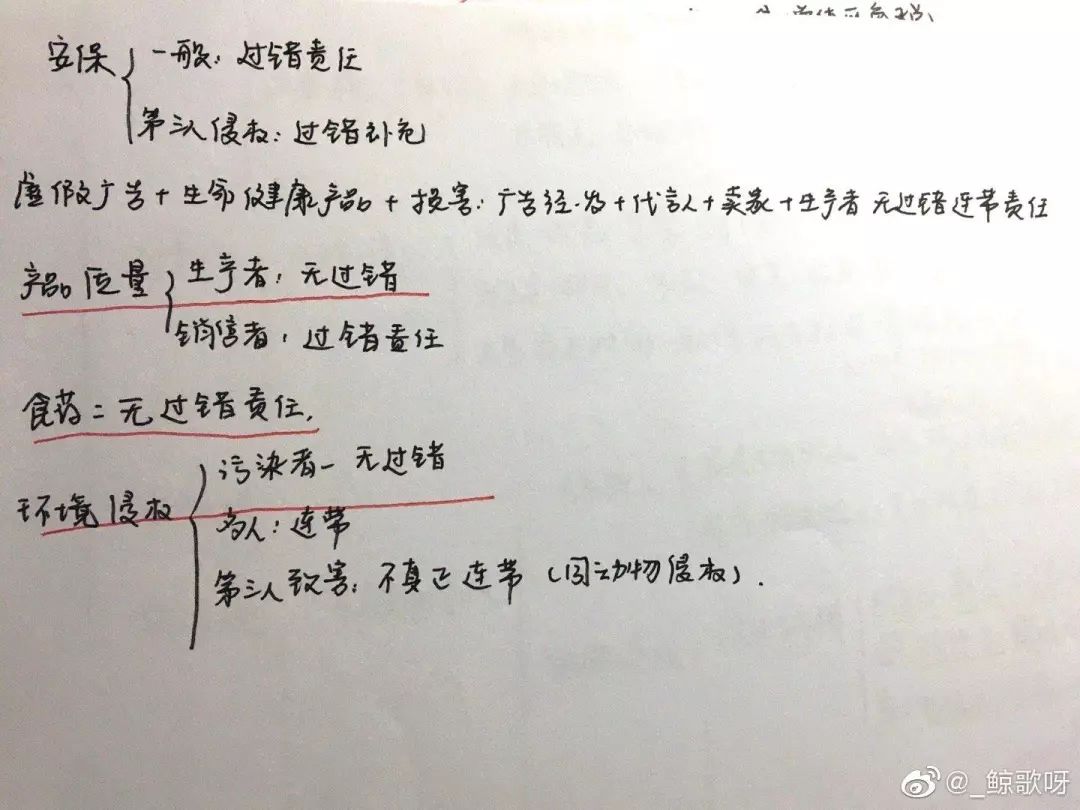 安保 一般：过错责任
第三人侵权：过错补充
虚假广告+生命健康产品+损害：广告经、发+代言人+卖家+生产者 无过错连带责任
产品质量 生产者：无过错
销售者：过错责任
食药：无过错责任.
环境侵权 污染者— 无过错
多人：连带
第三人致害：不真正连带（同动物侵权）.
@_鲸歌呀